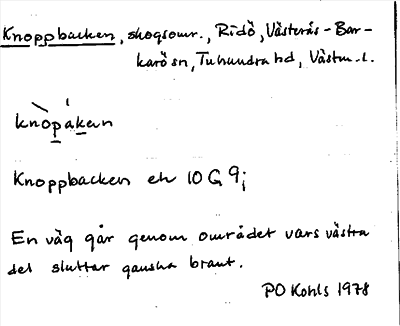 Knoppbacken, skogsomr., Ridö, Västerås-Bar-
karö sn, Tuhundra hd, Västm. l.
knòpákan
Knoppbacken ek 10 G 9j
En väg går genom området vars västra
del sluttar ganska brant.
PO Kohls 1978